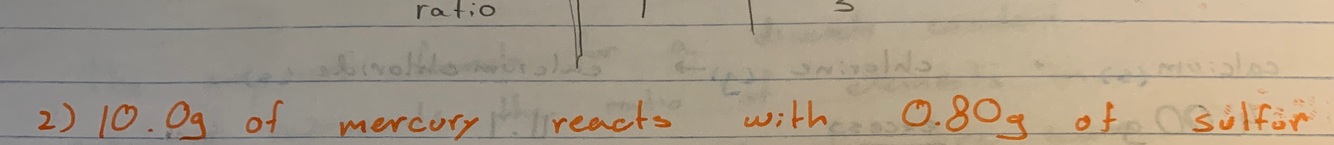 ratio 1 3
2) 10.0g of mercury reacts with 0.80g of sulfur